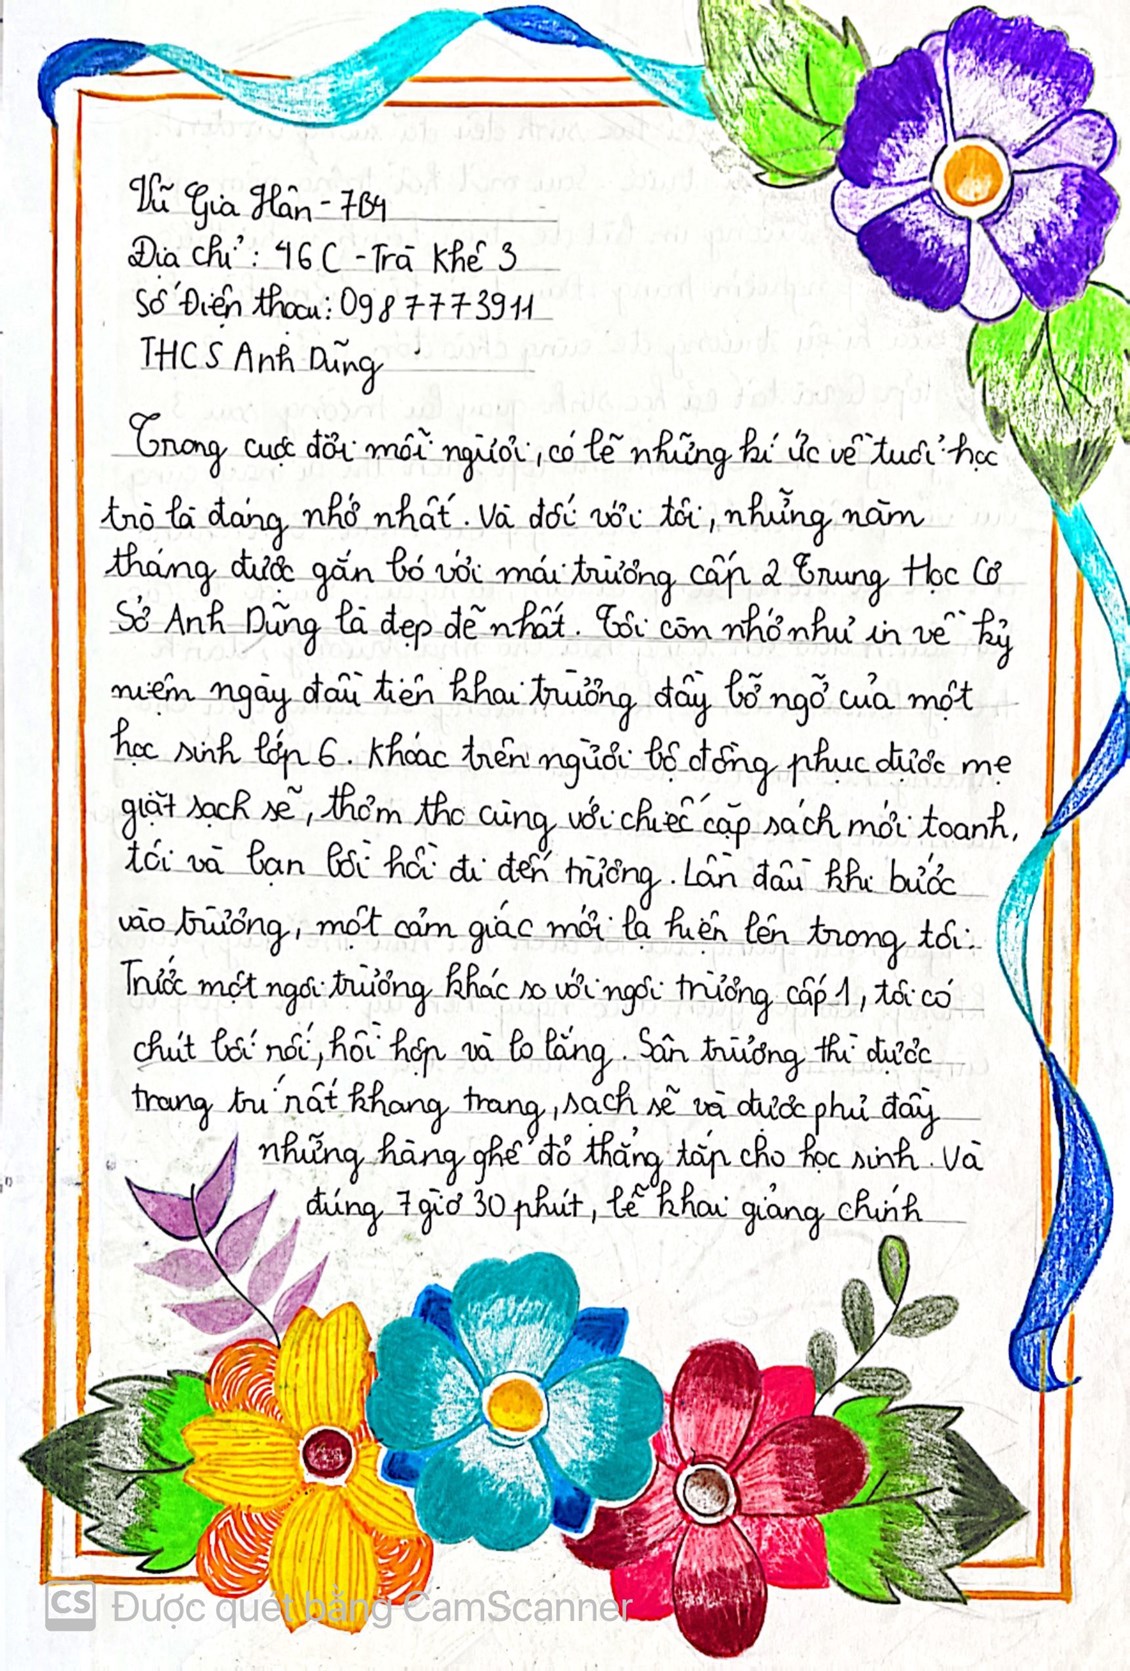 Vũ Gia Hân - 7B4
Địa chỉ: 46C - Trà Khê 3
Số Điện thoại: 0987773911
THCS Anh Dũng
Trong cuộc đời mỗi người, có lẽ những kí ức về tuổi học
trò là đáng nhớ nhất. Và đối với tôi, những năm
tháng được gắn bó với mái trường cấp 2 Trung Học Cơ
Sở Anh Dũng là đẹp đẽ nhất. Tôi còn nhớ như in về kỷ
niệm ngày đầu tiên khai trường đầy bỡ ngỡ của một
học sinh lớp 6. Khoác trên người bộ đồng phục được mẹ
giặt sạch sẽ, thơm tho cùng với chiếc cặp sách mới toanh,
tôi và bạn bồi hồi đi đến trường. Lần đầu khi bước
vào trường, một cảm giác mới lạ hiện lên trong tôi.
Trước một ngôi trường khác so với ngôi trường cấp 1, tôi có
chút bối rối, hồi hộp và lo lắng. Sân trường thì được
trang trí rất khang trang, sạch sẽ và được phủ đầy
những hàng ghế đỏ thẳng tắp cho học sinh. Và
đúng 7 giờ 30 phút, lễ khai giảng chính
CS Được quét bằng CamScanner